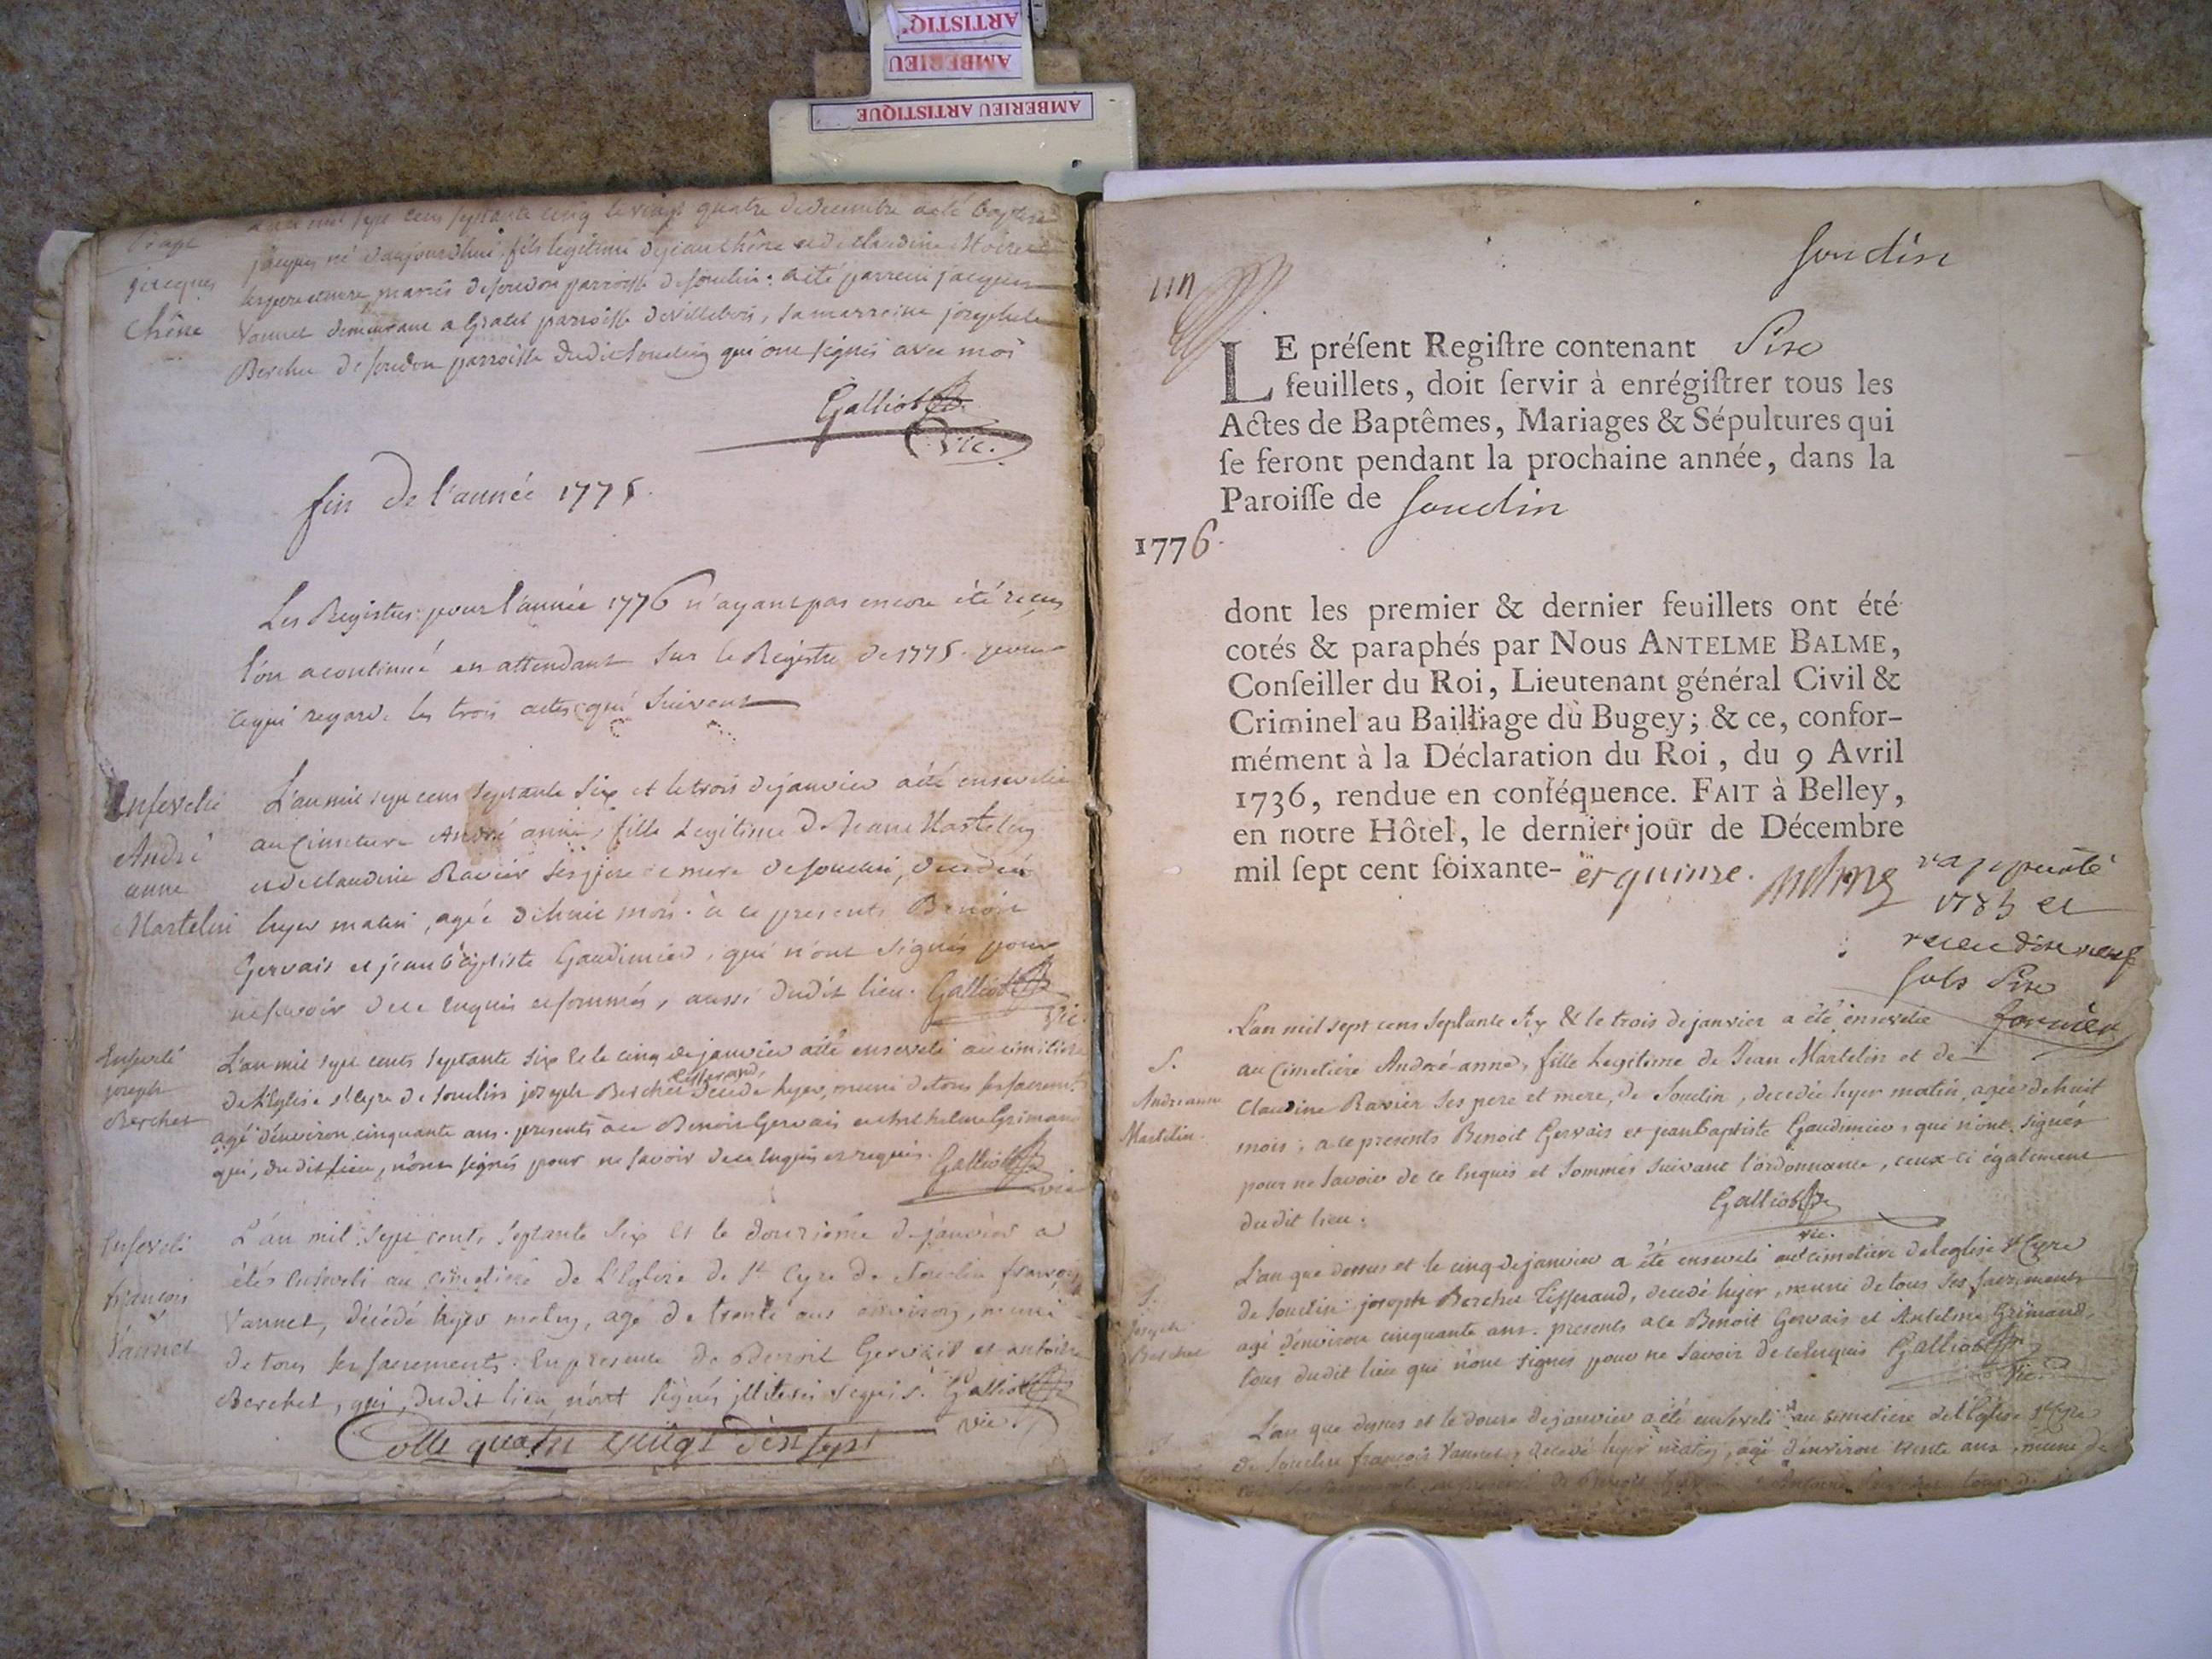 ARTISTIQ'
AMBERIEU
AMBERIEU ARTISTIQUE
mil sept cens septante cinq le vingt quatre decembre a eté baptisé
jacques né d'aujourdhui fils legitime de jean chêne et de claudine
jacques
chêne
ses pere et mere mariés de soudon parroisse de souclin. a eté parrein jacques
Vannet demeurant a parroisse de villebois, sa marraine josephete
Berchet de soudon parroisse dudit souclin qui ont signés avec moi
Galliot
vic.
fin de l'année 1775.
Les Registres pour l'année 1776 n'ayant pas encore été reçus
l'on a continué en attendant sur le Registre de 1775. pour
ce qui regarde les trois actes qui suivent
Ensevelie
André
anne
Martelin
L'an mil sept cens septante six et le trois de janvier a été ensevelie
au Cimetiere André anne, fille Legitime de Jean Martelin
et de claudine Ravier ses pere et mere de souclin, decedée
hyer matin, agée de huit mois. à ce presents Benoit
Gervais et jean baptiste Gaudimier, qui n'ont signés pour
ne savoir de ce enquis et sommés, aussi dudit lieu. Galliot
Vic.
Enseveli
joseph
Berchet
L'an mil sept cents septante six & le cinq de janvier a été enseveli au cimitiere
de L'Eglise st Cyre de souclin joseph Berchet tisserand, decedé hyer, muni de tous ses sacremts.
agé d'environ cinquante ans. presents à ce Benoit Gervais et Anthelme Grimand
qui, du dit lieu, n'ont signés pour ne savoir de ce enquis et requis. Galliot
vic
Enseveli
françois
Vannet
L'an mil sept cents septante six et le douzieme de janvier a
étés enseveli au cimetiere de L'Eglise de St Cyre de Souclin françois
Vannet, décédé hyer matin, agé de trente ans environ, muni
de tous ses sacrements. En presence de Benoit Gervais et antoine
Berchet, qui, dudit lieu n'ont signés illiterés requis. Galliot
vic.
Cotte quatre vingt dix sept
souclin
un
LE préſent Regiſtre contenant Six
feuillets, doit ſervir à enrégiſtrer tous les
Actes de Baptêmes, Mariages & Sépultures qui
ſe feront pendant la prochaine année, dans la
Paroiſſe de souclin
1776.
dont les premier & dernier feuillets ont été
cotés & paraphés par Nous ANTELME BALME,
Conſeiller du Roi, Lieutenant général Civil &
Criminel au Bailliage du Bugey; & ce, confor-
mément à la Déclaration du Roi, du 9 Avril
1736, rendue en conſéquence. FAIT à Belley,
en notre Hôtel, le dernier jour de Décembre
mil ſept cent ſoixante- et quinze. Balme
sols Six
S.
Andréanne
Martelin.
L'an mil sept cens septante six & le trois de janvier a été ensevelie
au Cimetiere André-anne, fille Legitime de Jean Martelin et de
Claudine Ravier ses pere et mere, de Souclin, decedée hyer matin, agée de huit
mois; a ce presents Benoit Gervais et jean Baptiste Gaudimier, qui n'ont signés
pour ne savoir de ce enquis et sommés suivant l'ordonnance, ceux ci également
du dit lieu.
Galliot
vic.
S.
joseph
Berchet
L'an que dessus et le cinq de janvier a été enseveli au cimetiere de l'eglise st Cyre
de Souclin joseph Berchet tisserand, decedé hyer, muni de tous ses sacrements
agé d'environ cinquante ans. presents a ce Benoit Gervais et Antelme Grimand,
tous dudit lieu qui n'ont signés pour ne savoir de ce enquis Galliot
Vic.
L'an que dessus et le douze de janvier a été enseveli au cimetiere de l'Eglise st Cyre
de Souclin françois Vannet, decedé hyer matin, agé d'environ trente ans, muni de